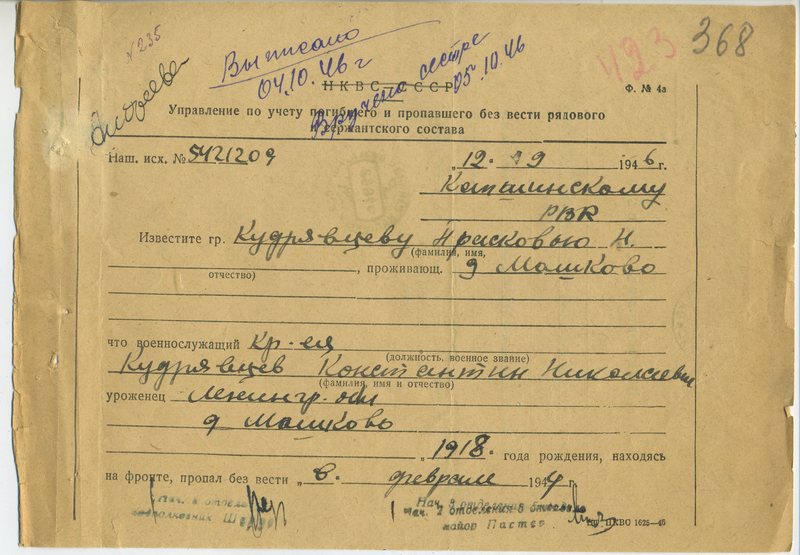 № 235
Выписано
04.10.46 г
Вручено сестре
05.10.46
423
368
НКВС СССР
Ф. № 4а
Управление по учету погибшего и пропавшего без вести рядового
и сержантского состава
Наш. исх. № 5421209
„12. 09 1946 г.
Капшинскому
РВК
Известите гр. Кудрявцеву Прасковью Н.
(фамилия, имя,
отчество)
, проживающ. д Машково
что военнослужащий кр-ец
(должность, военное звание)
Кудрявцев Константин Николаевич
(фамилия, имя и отчество)
уроженец Ленингр. обл
д Машково
„1918. года рождения, находясь
на фронте, пропал без вести „в. феврале 1944 г.
Нач. 8 отдела
подполковник
Нач. 2 отделения 8 отдела
майор
НКВО 1625—46